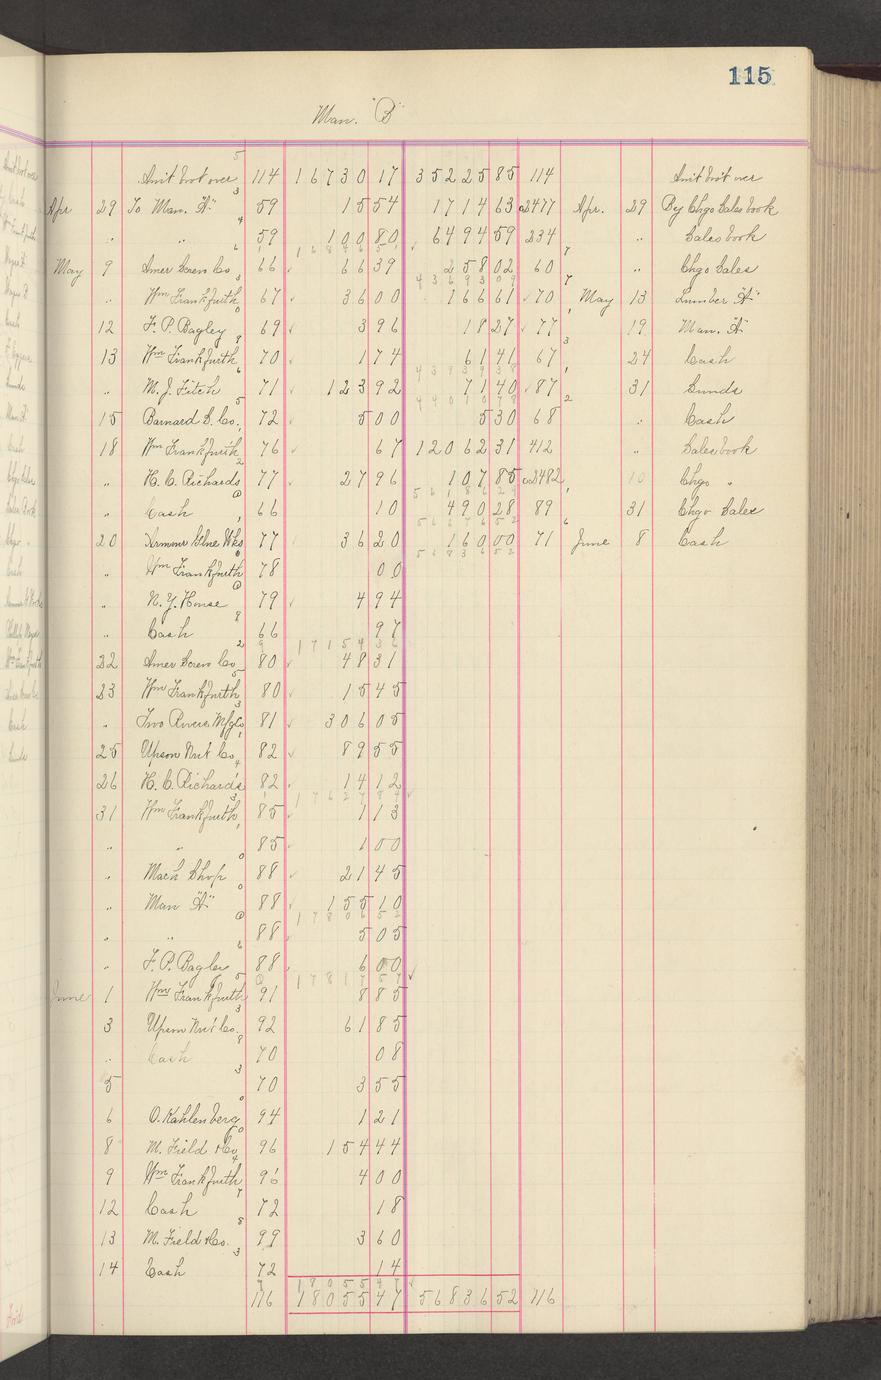 115
Man. "B"
Am't bro't over 114 16730 17 35225 85 114 Am't bro't over
Apr 29 To Man. "A" 59 15 54 1714 63 2477 Apr. 29 By Chgo Sales book
" " 59 100 80 6494 59 234 " Sales book
May 9 Amer Screw Co 66 66 39 258 02 60 " Chgo Sales
" Wm Frankfurth 67 36 00 166 61 70 May 13 Lumber "A"
12 F. P. Bagley 69 3 96 18 27 77 19 Man. "A"
13 Wm Frankfurth 70 1 74 61 41 67 24 Cash
" M. J. Fitch 71 123 92 71 40 87 31 Sunds
15 Barnard S. Co. 72 5 00 5 30 68 " Cash
18 Wm Frankfurth 76 67 12062 31 412 " Sales book
" H. C. Richards 77 27 96 107 85 2482 10 Chgo "
" Cash 66 10 490 28 89 31 Chgo Sales
20 Armour Glue Wks 77 36 20 160 00 71 June 8 Cash
" Wm Frankfurth 78 00
" N. Y. House 79 4 94
" Cash 66 97
22 Amer Screw Co 80 48 31
23 Wm Frankfurth 80 15 45
" Two Rivers Mfg Co 81 306 05
25 Upson Nut Co. 82 89 55
26 H. C. Richards 82 14 12
31 Wm Frankfurth 85 1 13
" " 85 1 00
" Mach Shop 88 21 45
" Man "A" 88 155 10
" " 88 5 05
" F. P. Bagley 88 6 00
June 1 Wm Frankfurth 91 8 85
3 Upson Nut Co. 92 61 85
" Cash 70 08
5 70 3 55
6 O. Kahlenberg 94 1 21
8 M. Field & Co 96 154 44
9 Wm Frankfurth 96 4 00
12 Cash 72 18
13 M. Field & Co. 99 3 60
14 Cash 72 14
116 18055 47 56836 52 116